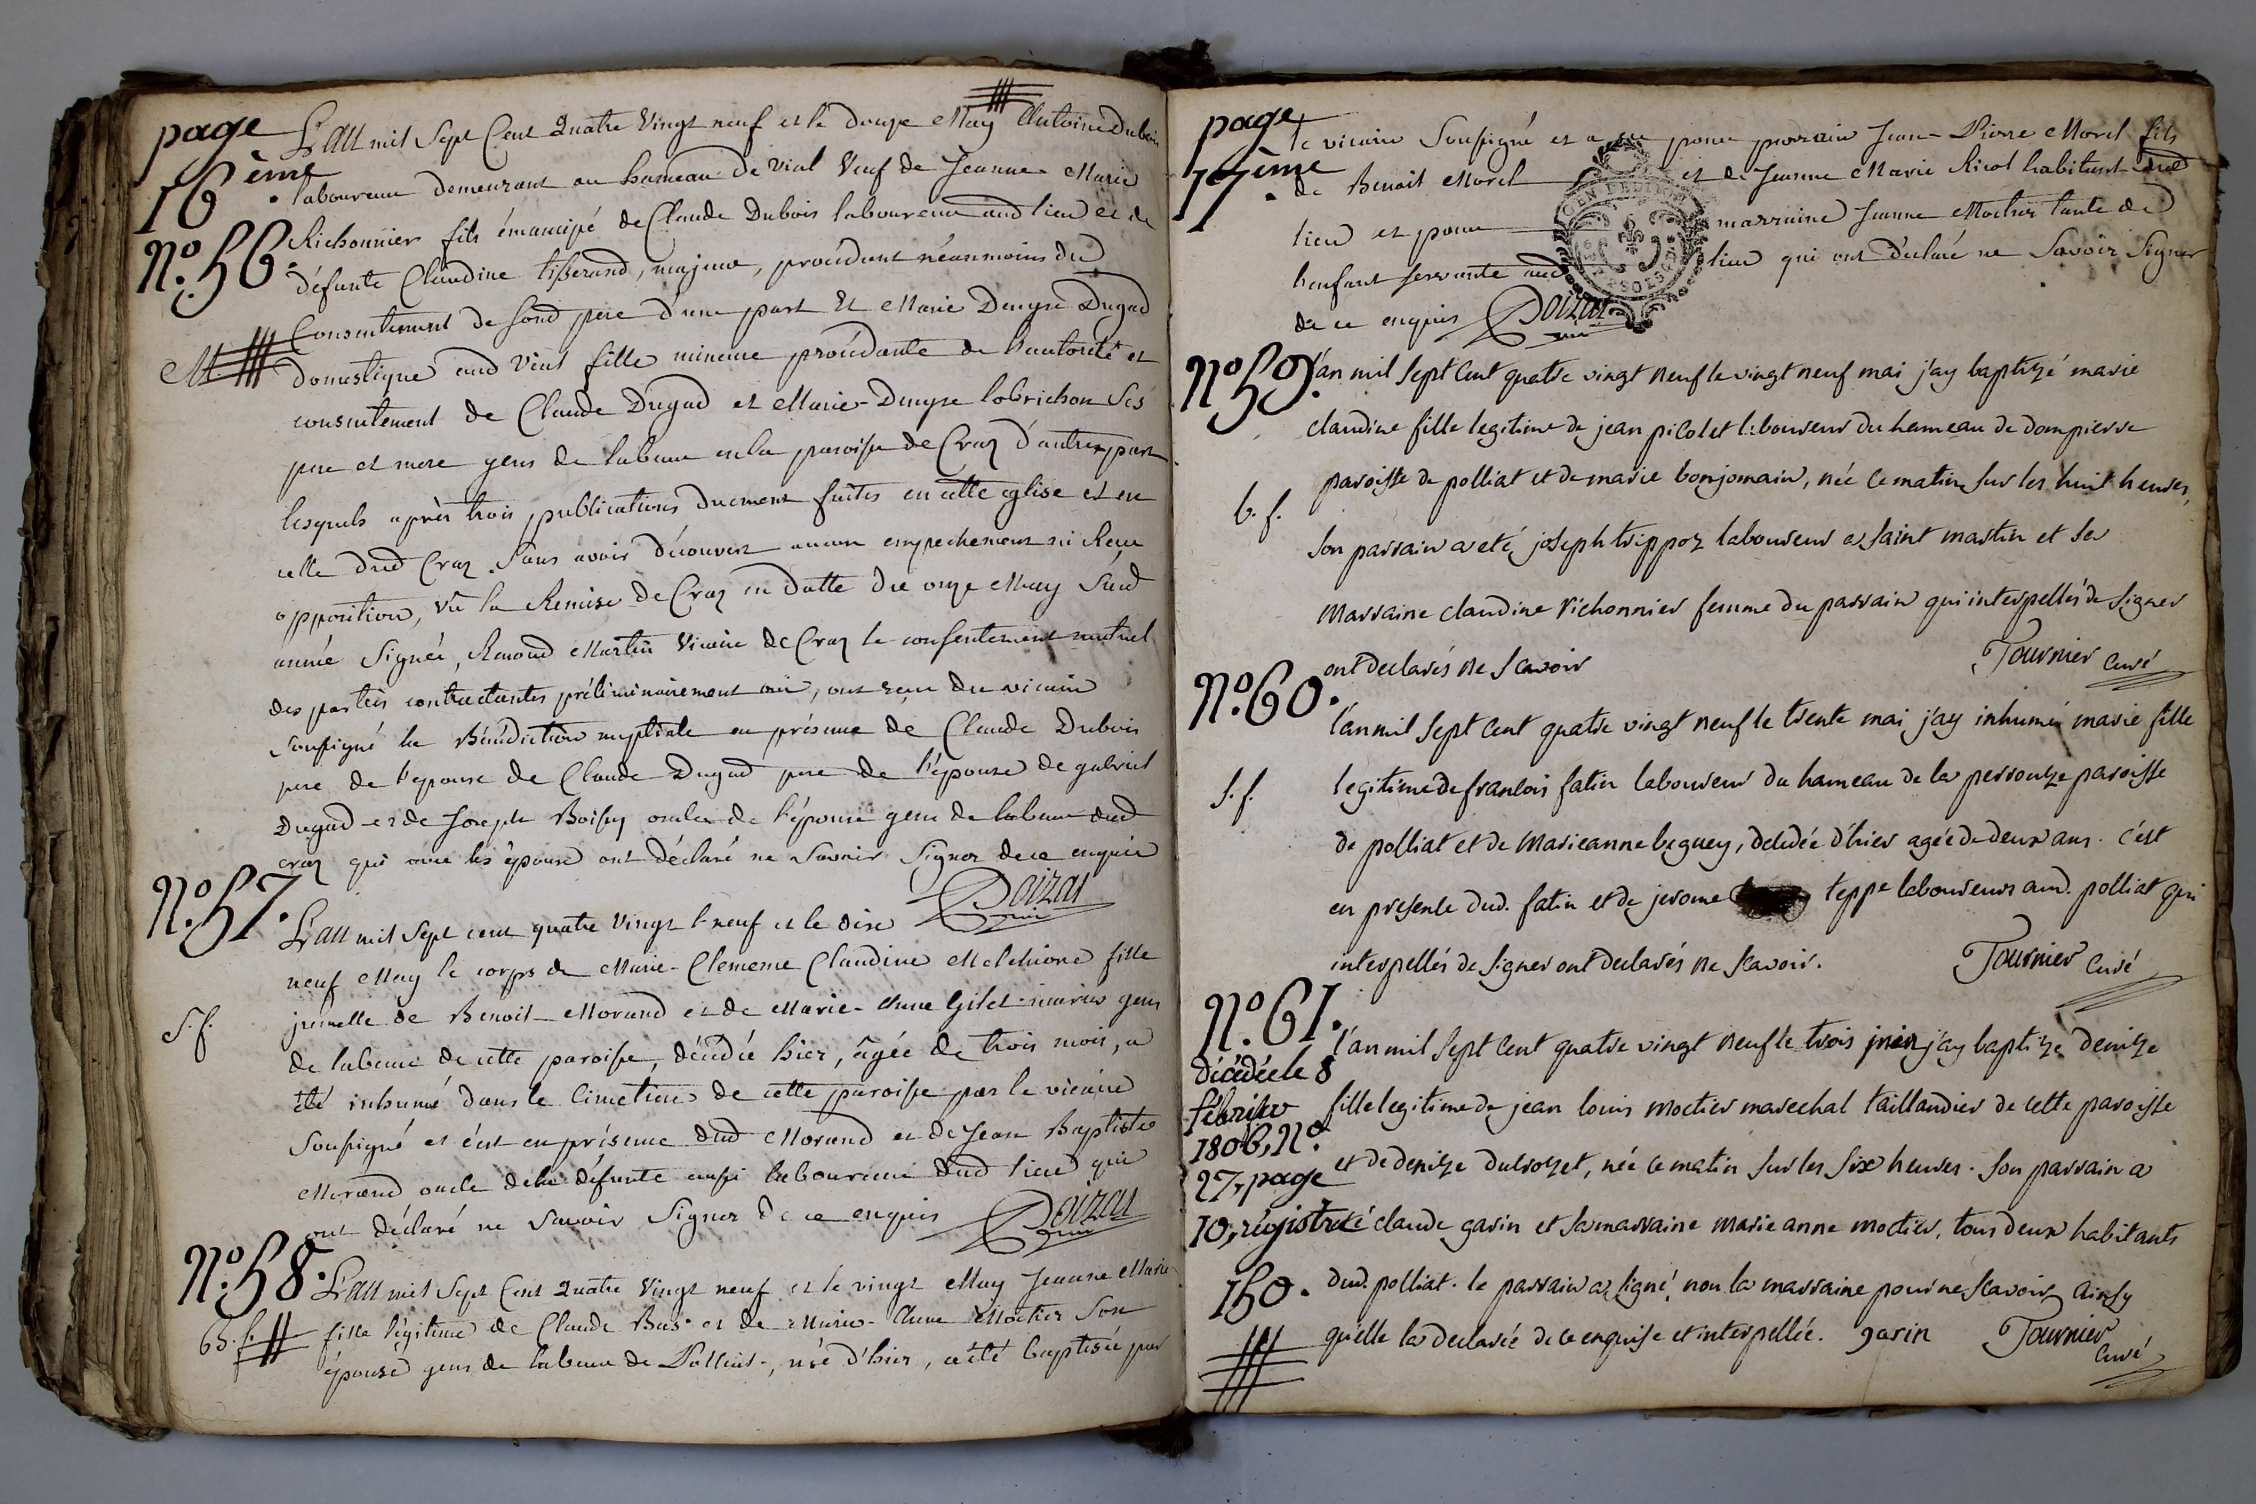 page 16ème.
L'an mil Sept Cent Quatre Vingt neuf et le douze May Antoine Dubois
laboureur demeurant au hameau de vial Veuf de Jeanne Marie
N.º 56.
Richonnier fils émancipé de Claude Dubois laboureur aud lieu et de
défunte Claudine tisserand, majeur, procédant néanmoins du
Consentement de sond père d'une part Et Marie Denyse Dugad
M.
domestique aud Vial fille mineure procédante de l'autorité et
consentement de Claude Dugad et Marie-Denyse lobrichon Ses
pere et mere gens de labeur en la paroisse de Craz d'autre part
lesquels après trois publications duement faites en cette église et en
celle dud Craz. Sans avoir découvert aucun empechement ni Reçu
opposition, vû la Remise de Craz en datte du onze May Sud
année Signée, Renoud Martin Vicaire de Craz le consentement mutuel
des parties contractantes préliminairement ouï, ont reçu du vicaire
soussigné la Bénédiction nuptiale en présence de Claude Dubois
pere de l'epoux de Claude Dugad pere de l'épouse de gabriel
Dugad et de Joseph Boissy oncles de l'épouse gens de labeur dud
craz qui avec les épous ont déclaré ne Savoir Signer de ce enquis
Doizat
N.º 57.
L'an mil Sept cent quatre Vingt neuf et le dix
neuf May le corps de Marie-Clemence Claudine Melchione fille
jumelle de Benoit Morand et de Marie-Anne Gilet mariés gens
S. f.
de labeur de cette paroisse, décédée hier, âgée de trois mois, a
été inhumé dans le Cimetiere de cette paroisse par le vicaire
soussigné et c'est en présence dud Morand et de Jean Baptiste
Morand oncle de la défunte aussi laboureur dud lieu qui
ont déclaré ne Savoir Signer de ce enquis Doizat
N.º 58.
L'an mil Sept Cent Quatre Vingt neuf et le vingt May Jeanne Marie
B. f.
fille légitime de Claude Bas et de Marie-Anne Moctier Son
épouse gens de labeur de Polliat, née d'hier, a été baptisée par
page 17ème.
le vicaire soussigné et a eu pour parrain Jean-Pierre Morel fils
de Benoit Morel et de Jeanne Marie Ricol habitant dud
lieu et pour marraine Jeanne Moctier tante de
l'enfant servante aud lieu qui ont déclaré ne Savoir Signer
de ce enquis Doizat
N.º 59.
l'an mil sept cent quatre vingt neuf le vingt neuf mai j'ay baptizé marie
claudine fille legitime de jean picolet laboureur du hameau de dompierre
paroisse de polliat et de marie bonjomain, née ce matin sur les huit heures,
b. f.
son parrain a eté joseph trippoz laboureur a saint martin et sa
marraine claudine richonnier femme du parrain qui interpellés de signer
ont declarés ne scavoir
Tournier curé
N.º 60.
l'an mil sept cent quatre vingt neuf le trente mai j'ay inhumé marie fille
S. f.
legitime de francois fatin laboureur du hameau de la perrouze paroisse
de polliat et de marieanne beguey, decedée d'hier agée de deux ans. c'est
en presence dud. fatin et de jerome teppe laboureurs aud. polliat qui
interpellés de signer ont declarés ne scavoir.
Tournier curé
N.º 61.
l'an mil sept cent quatre vingt neuf le trois juin j'ay baptizé denize
décédée le 8 février 1806, N.º 27, page 10, régistre 150.
fille legitime de jean louis moctier marechal taillandier de cette paroisse
et de denize ducrozet, née ce matin sur les six heures. son parrain a
eté claude garin et sa marraine marie anne moctier, tous deux habitants
dud. polliat. le parrain a signé, non la marraine pour ne scavoir ainsy
quelle la declarée de ce enquise et interpellée. garin Tournier
curé